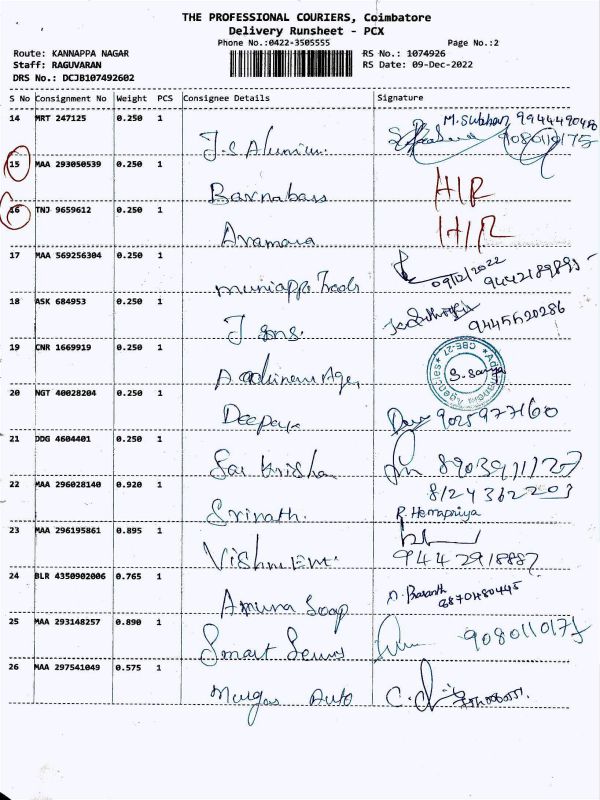 THE PROFESSIONAL COURIERS, Coimbatore
Delivery Runsheet - PCX
Phone No.:0422-3505555
Page No.:2
Route: KANNAPPA NAGAR
RS No.: 1074926
Staff: RAGUVARAN
RS Date: 09-Dec-2022
DRS No.: DCJB107492602
S No Consignment No Weight PCS Consignee Details Signature
14 MRT 247125 0.250 1
M. Subhan 9944490480
J.S Alumium. 9080110175
15 MAA 293050539 0.250 1
Barnabass H/R
16 TNJ 9659612 0.250 1
Aramara H/R
17 MAA 569256304 0.250 1
muniappa Trads 09/12/2022 9442189895
18 ASK 684953 0.250 1
J sons. 9445520286
19 CNR 1669919 0.250 1
S. Saniya
20 NGT 40028204 0.250 1
Deepaya 9025977160
21 DDG 4604401 0.250 1
Sai Krisha 8903911127
22 MAA 296028140 0.920 1
8124362203
Srinath. R. Hemapriya
23 MAA 296195861 0.895 1
Vishnu Ent. 9442918887
24 BLR 4350902006 0.765 1
Amuna Soap
25 MAA 293148257 0.890 1
Smart 9080110175
26 MAA 297541049 0.575 1
Murgas Auto